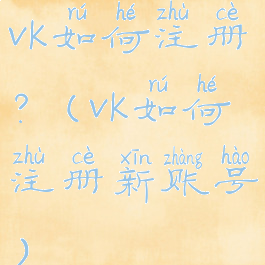 rú hé zhù cè
vk如何注册
rú hé
?(vk如何
zhù cè xīn zhàng hào
注册新账号
)